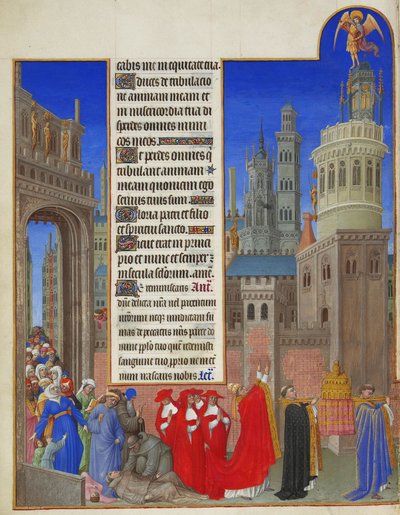 cabis me in equitate tua.
Educes de tribulatio
ne animam meam et
in misericordia tua di
sperdes omnes inimi
cos meos.
Et perdes omnes q
tribulant animam
meam quoniam ego
servus tuus sum.
Gloria patri et filio
et spiritui sancto.
Sicut erat in princi
pio et nunc et semper et
in secula sclorum. amē.
Ne reminiscaris Añt.
dñe delicta nr̄a vel parentum
nr̄orum neqꝫ vindictam su
mas de peccatis nr̄is parce do
mine pp̄lo tuo quē redemisti
sanguine tuo pp̄rio ne in et
num irascaris nobis